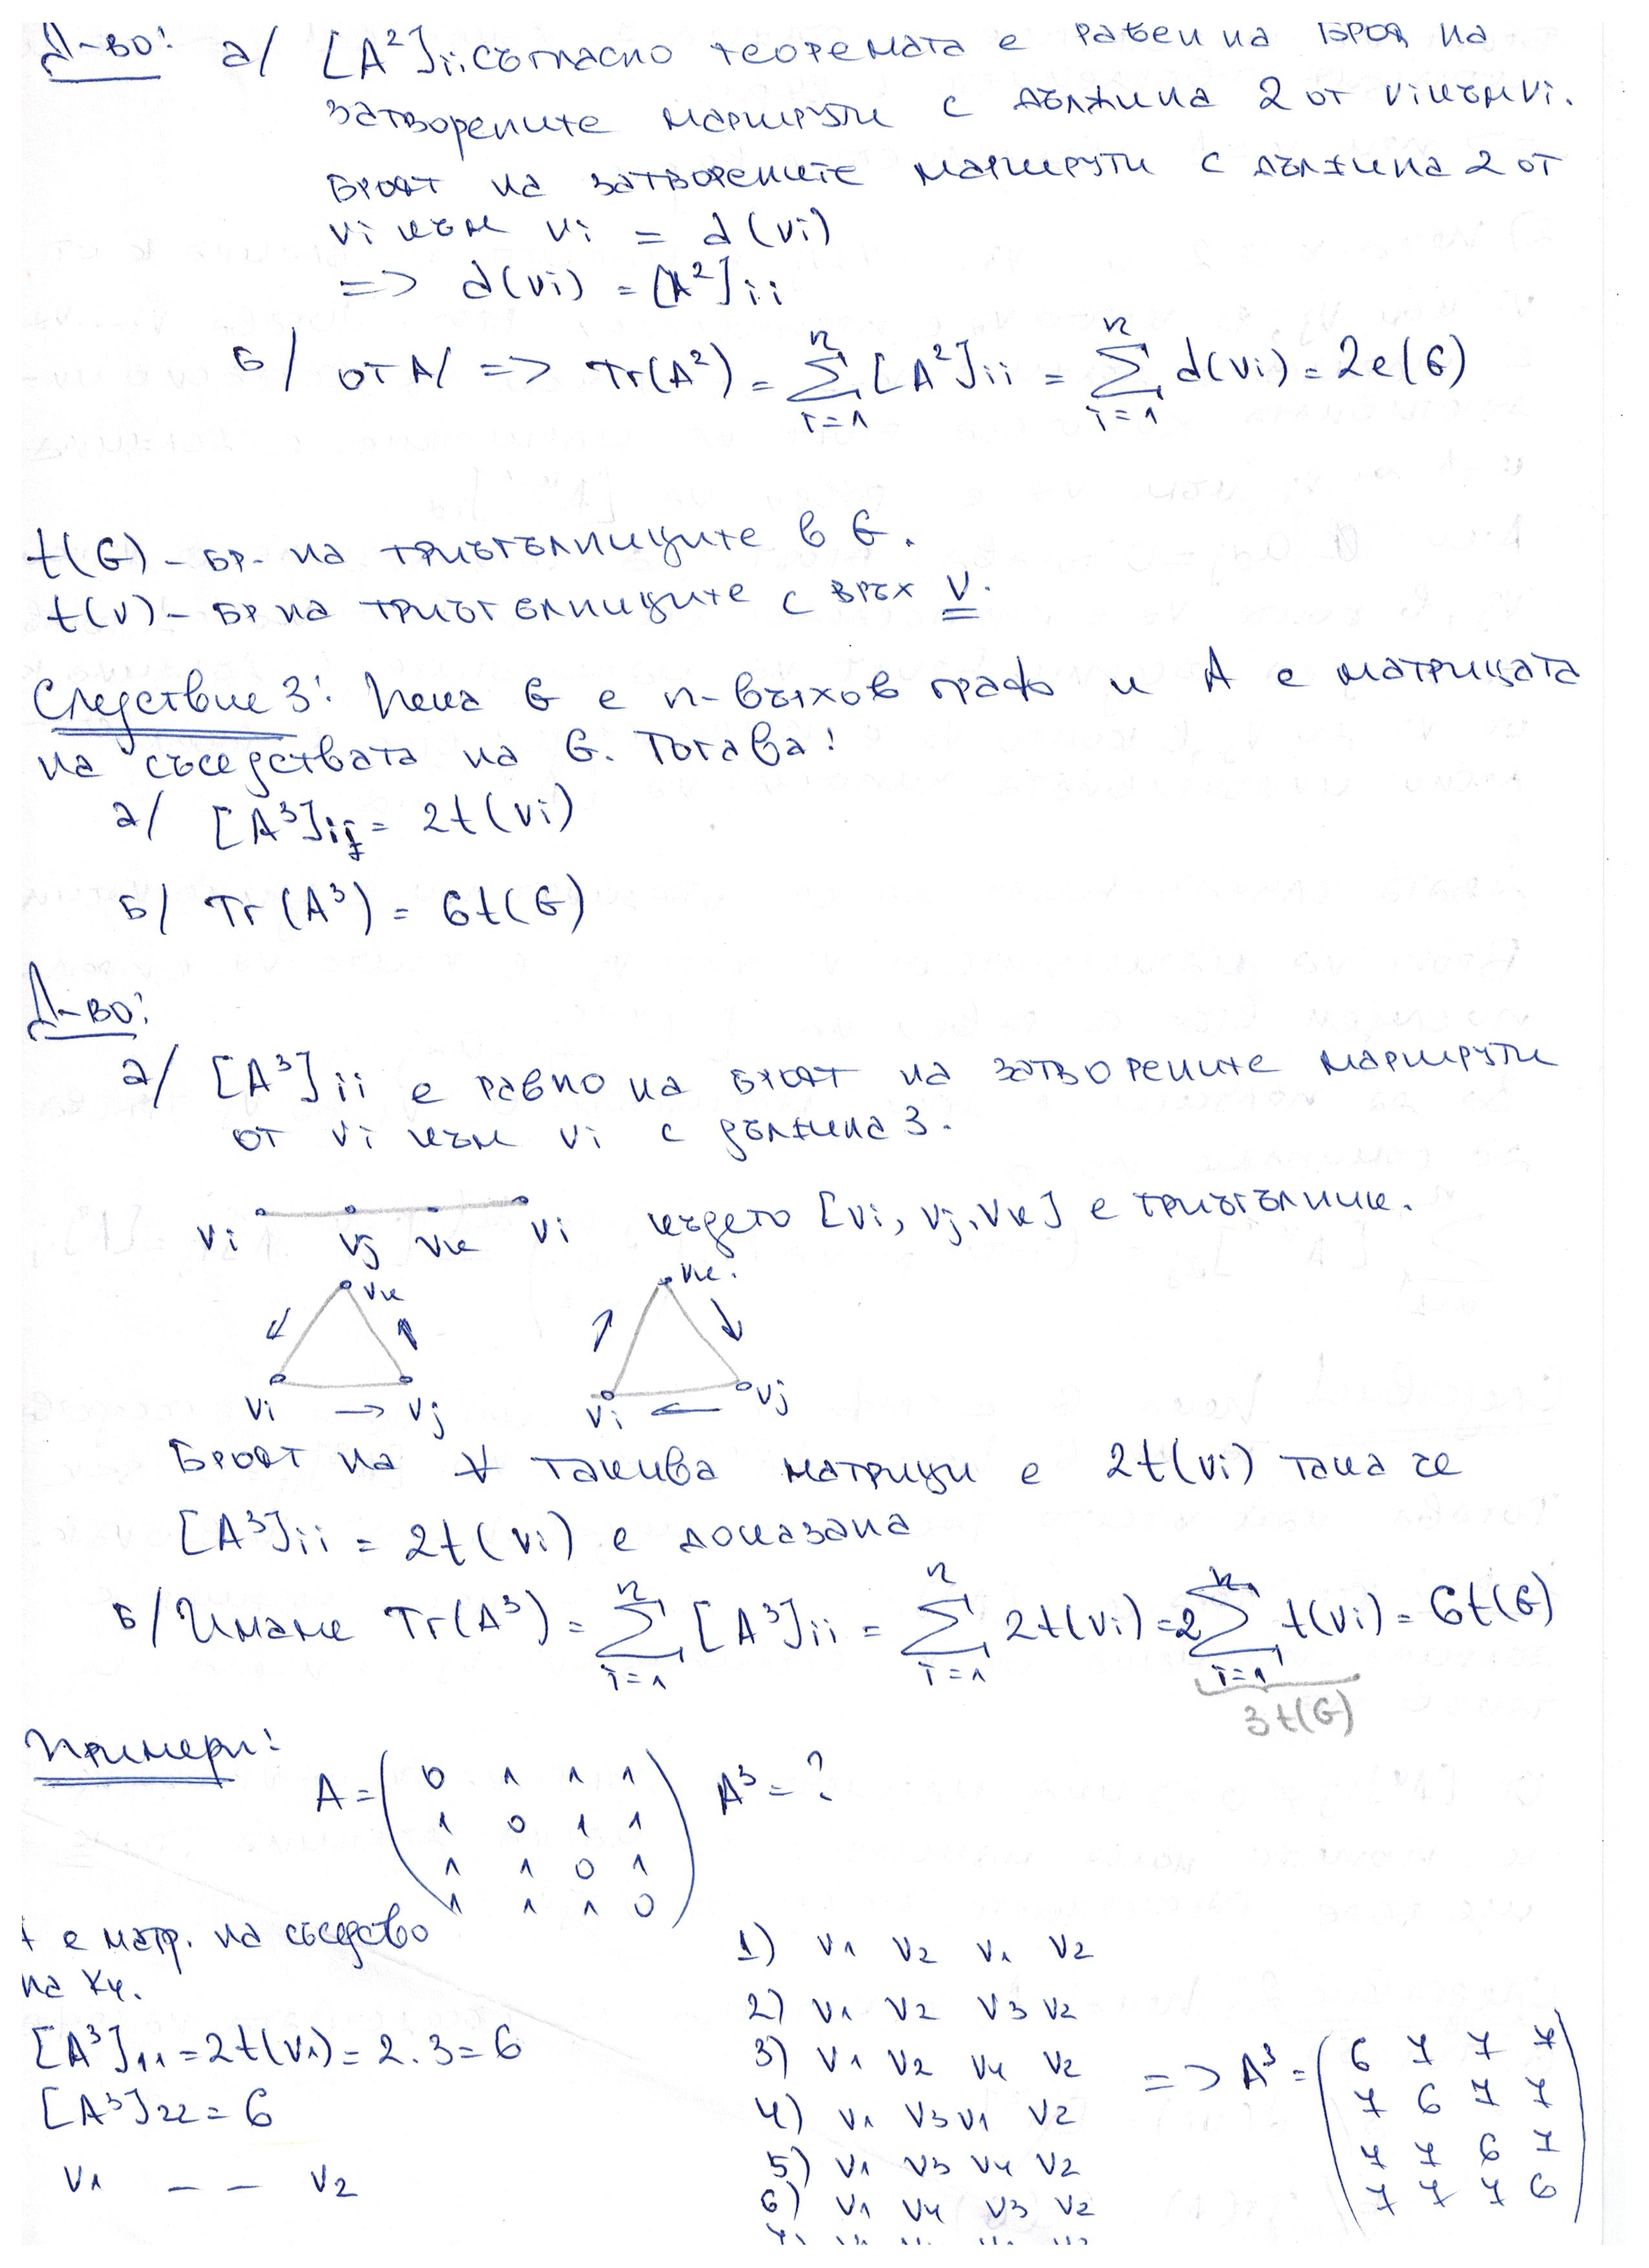 Д-во: а/ [A²]ii съгласно теоремата е равен на броя на
затворените маршрути с дължина 2 от vi към vi.
Броят на затворените маршрути с дължина 2 от
vi към vi = d(vi)
=> d(vi) = [A²]ii
Б/ от А/ => Tr(A²) = ∑ⁿᵢ₌₁ [A²]ii = ∑ⁿᵢ₌₁ d(vi) = 2e(G)
t(G) – бр. на триъгълниците в G.
t(v) – бр на триъгълниците с връх v.
Следствие 3: Нека G е n-върхов граф и A е матрицата
на съседствата на G. Тогава:
а/ [A³]ii = 2t(vi)
Б/ Tr(A³) = 6t(G)
Д-во:
а/ [A³]ii е равно на броят на затворените маршрути
от vi към vi с дължина 3.
vi vj vк vi където [vi, vj, vк] е триъгълник.
vк vк.
vi → vj vi ← vj
Броят на ∀ такива матрици е 2t(vi) така че
[A³]ii = 2t(vi) е доказана
Б/ Имаме Tr(A³) = ∑ⁿᵢ₌₁ [A³]ii = ∑ⁿᵢ₌₁ 2t(vi) = 2∑ⁿᵢ₌₁ t(vi) = 6t(G)
3t(G)
Примери:
A = ( 0 1 1 1 A³ = ?
1 0 1 1
1 1 0 1
1 1 1 0 )
е матр. на съседство
на K4.
[A³]11 = 2t(v1) = 2.3 = 6
[A³]22 = 6
v1 – – v2
1) v1 v2 v1 v2
2) v1 v2 v3 v2
3) v1 v2 v4 v2
4) v1 v3 v1 v2
5) v1 v3 v4 v2
6) v1 v4 v3 v2
=> A³ = ( 6 7 7 7
7 6 7 7
7 7 6 7
7 7 7 6 )